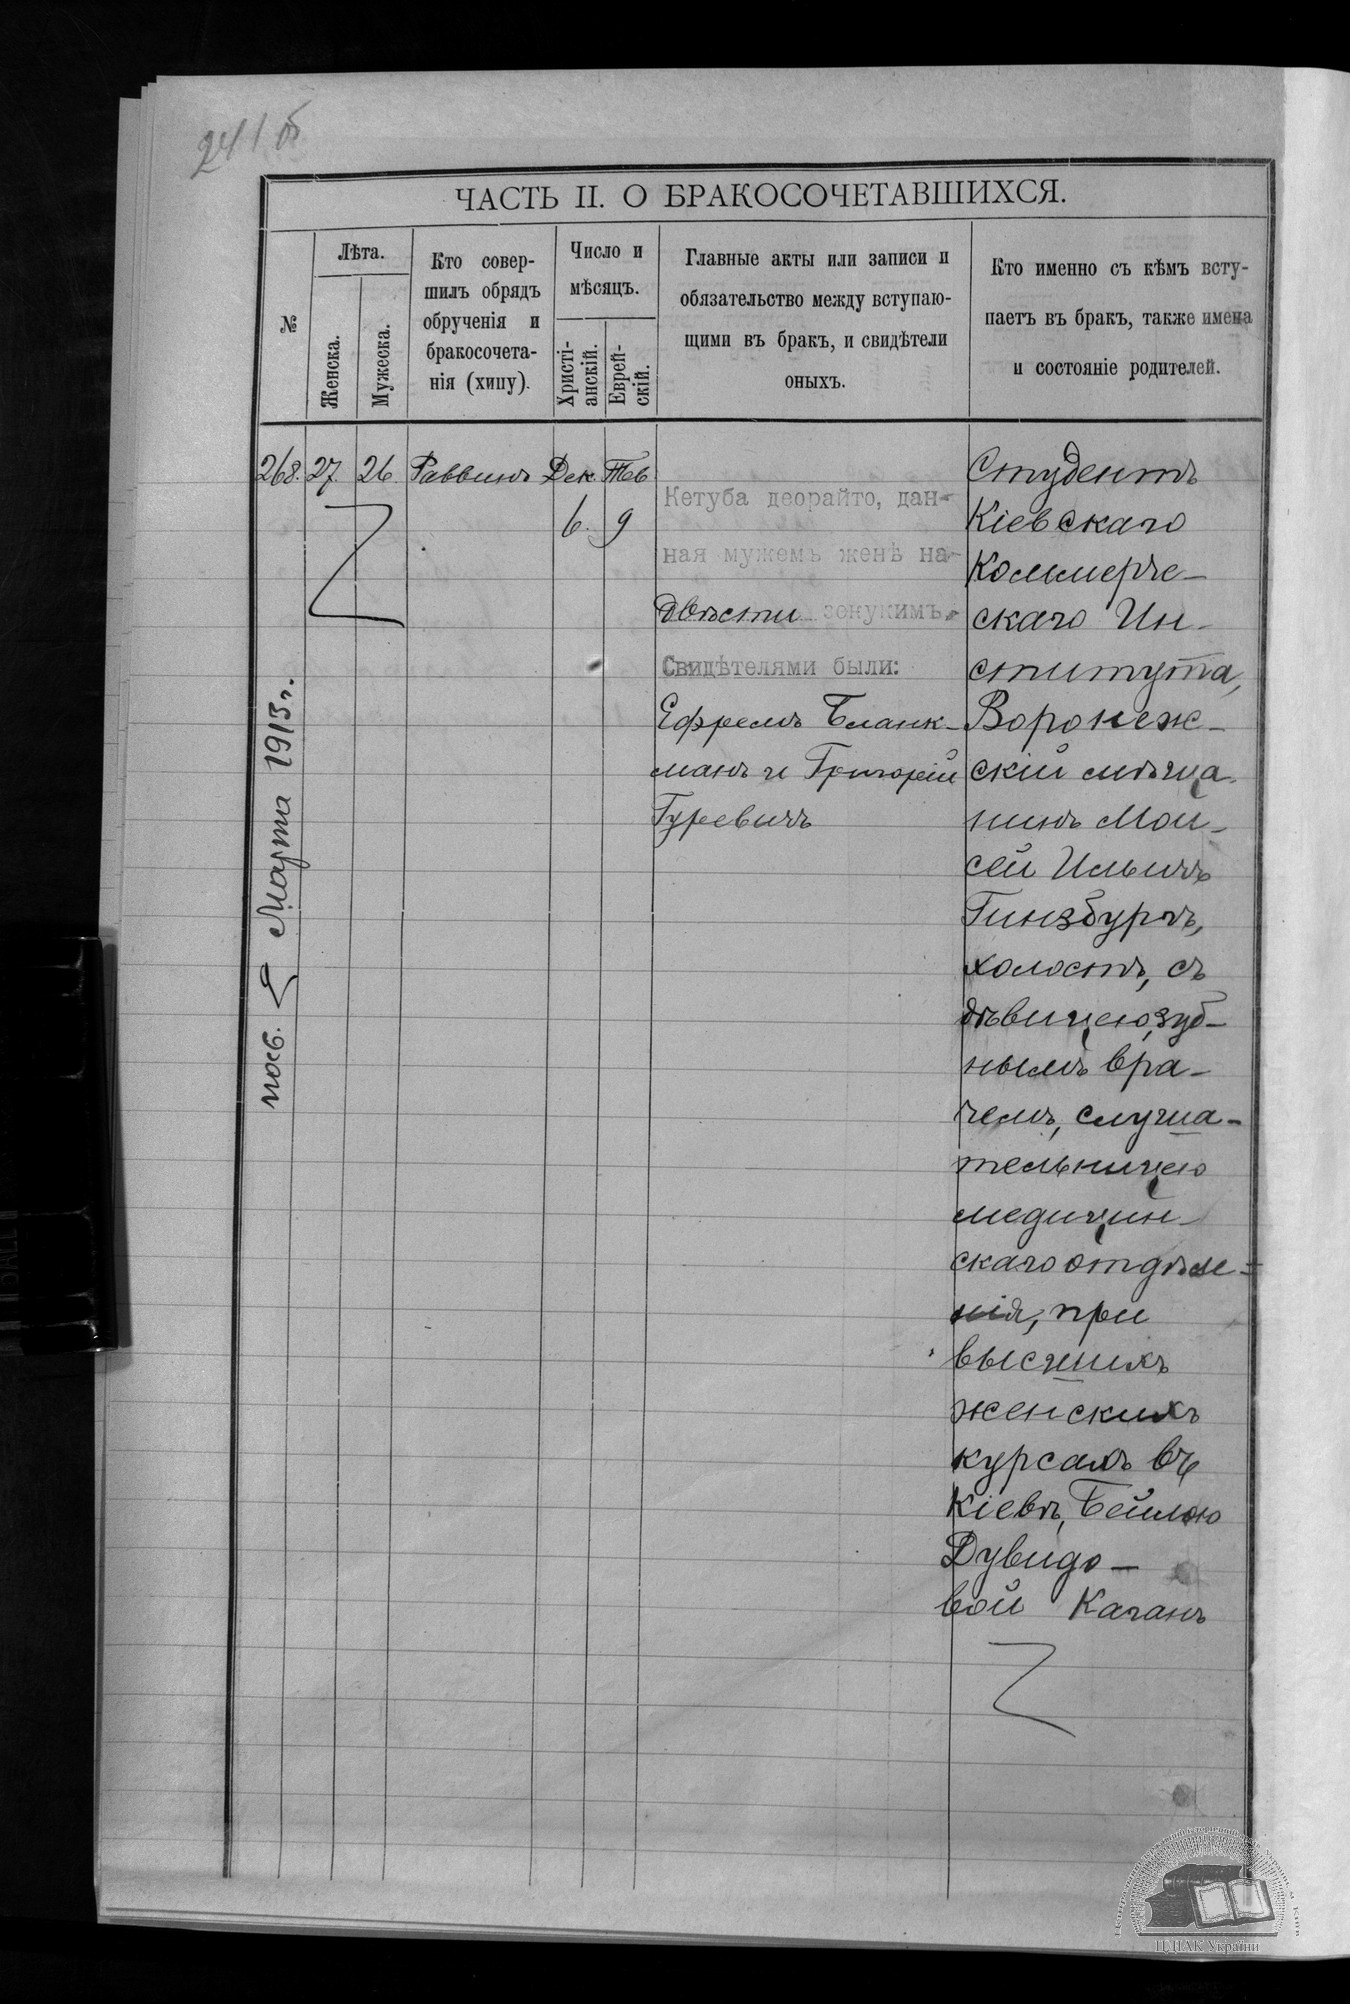 241 об
ЧАСТЬ II. О БРАКОСОЧЕТАВШИХСЯ.
№
Лѣта.
Женска.
Мужеска.
Кто совер-
шилъ обрядъ
обрученія и
бракосочета-
нія (хипу).
Число и
мѣсяцъ.
Христі-
анскій.
Еврей-
скій.
Главные акты или записи и
обязательство между вступаю-
щими въ бракъ, и свидѣтели
оныхъ.
Кто именно съ кѣмъ всту-
паетъ въ бракъ, также имена
и состояніе родителей.
268. 27. 26. Раввинъ Дек. Тев
6. 9
Кетуба деорайто, дан-
ная мужемъ женѣ на-
двѣсти зокукимъ.
Свидѣтелями были:
Ефремъ Бланк-
манъ и Григорій
Гуревичъ
Студентъ
Кіевскаго
Коммерче-
скаго Ин-
ститута,
Воронеж-
скій мѣща-
нинъ Мои-
сей Ильичъ
Гинзбургъ,
холостъ, съ
дѣвицею, зуб-
нымъ вра-
чемъ, слуша-
тельницею
медицин-
скаго отдѣле-
нія, при
высшихъ
женскихъ
курсахъ въ
Кіевѣ, Бейлою
Дувидо-
вой Каганъ
Марта 1913 г.
ЦДІАК України